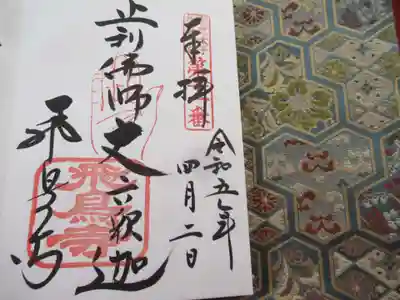 奉拝
令和五年
四月二日
止利佛師
丈六釈迦
飛鳥寺
飛鳥寺